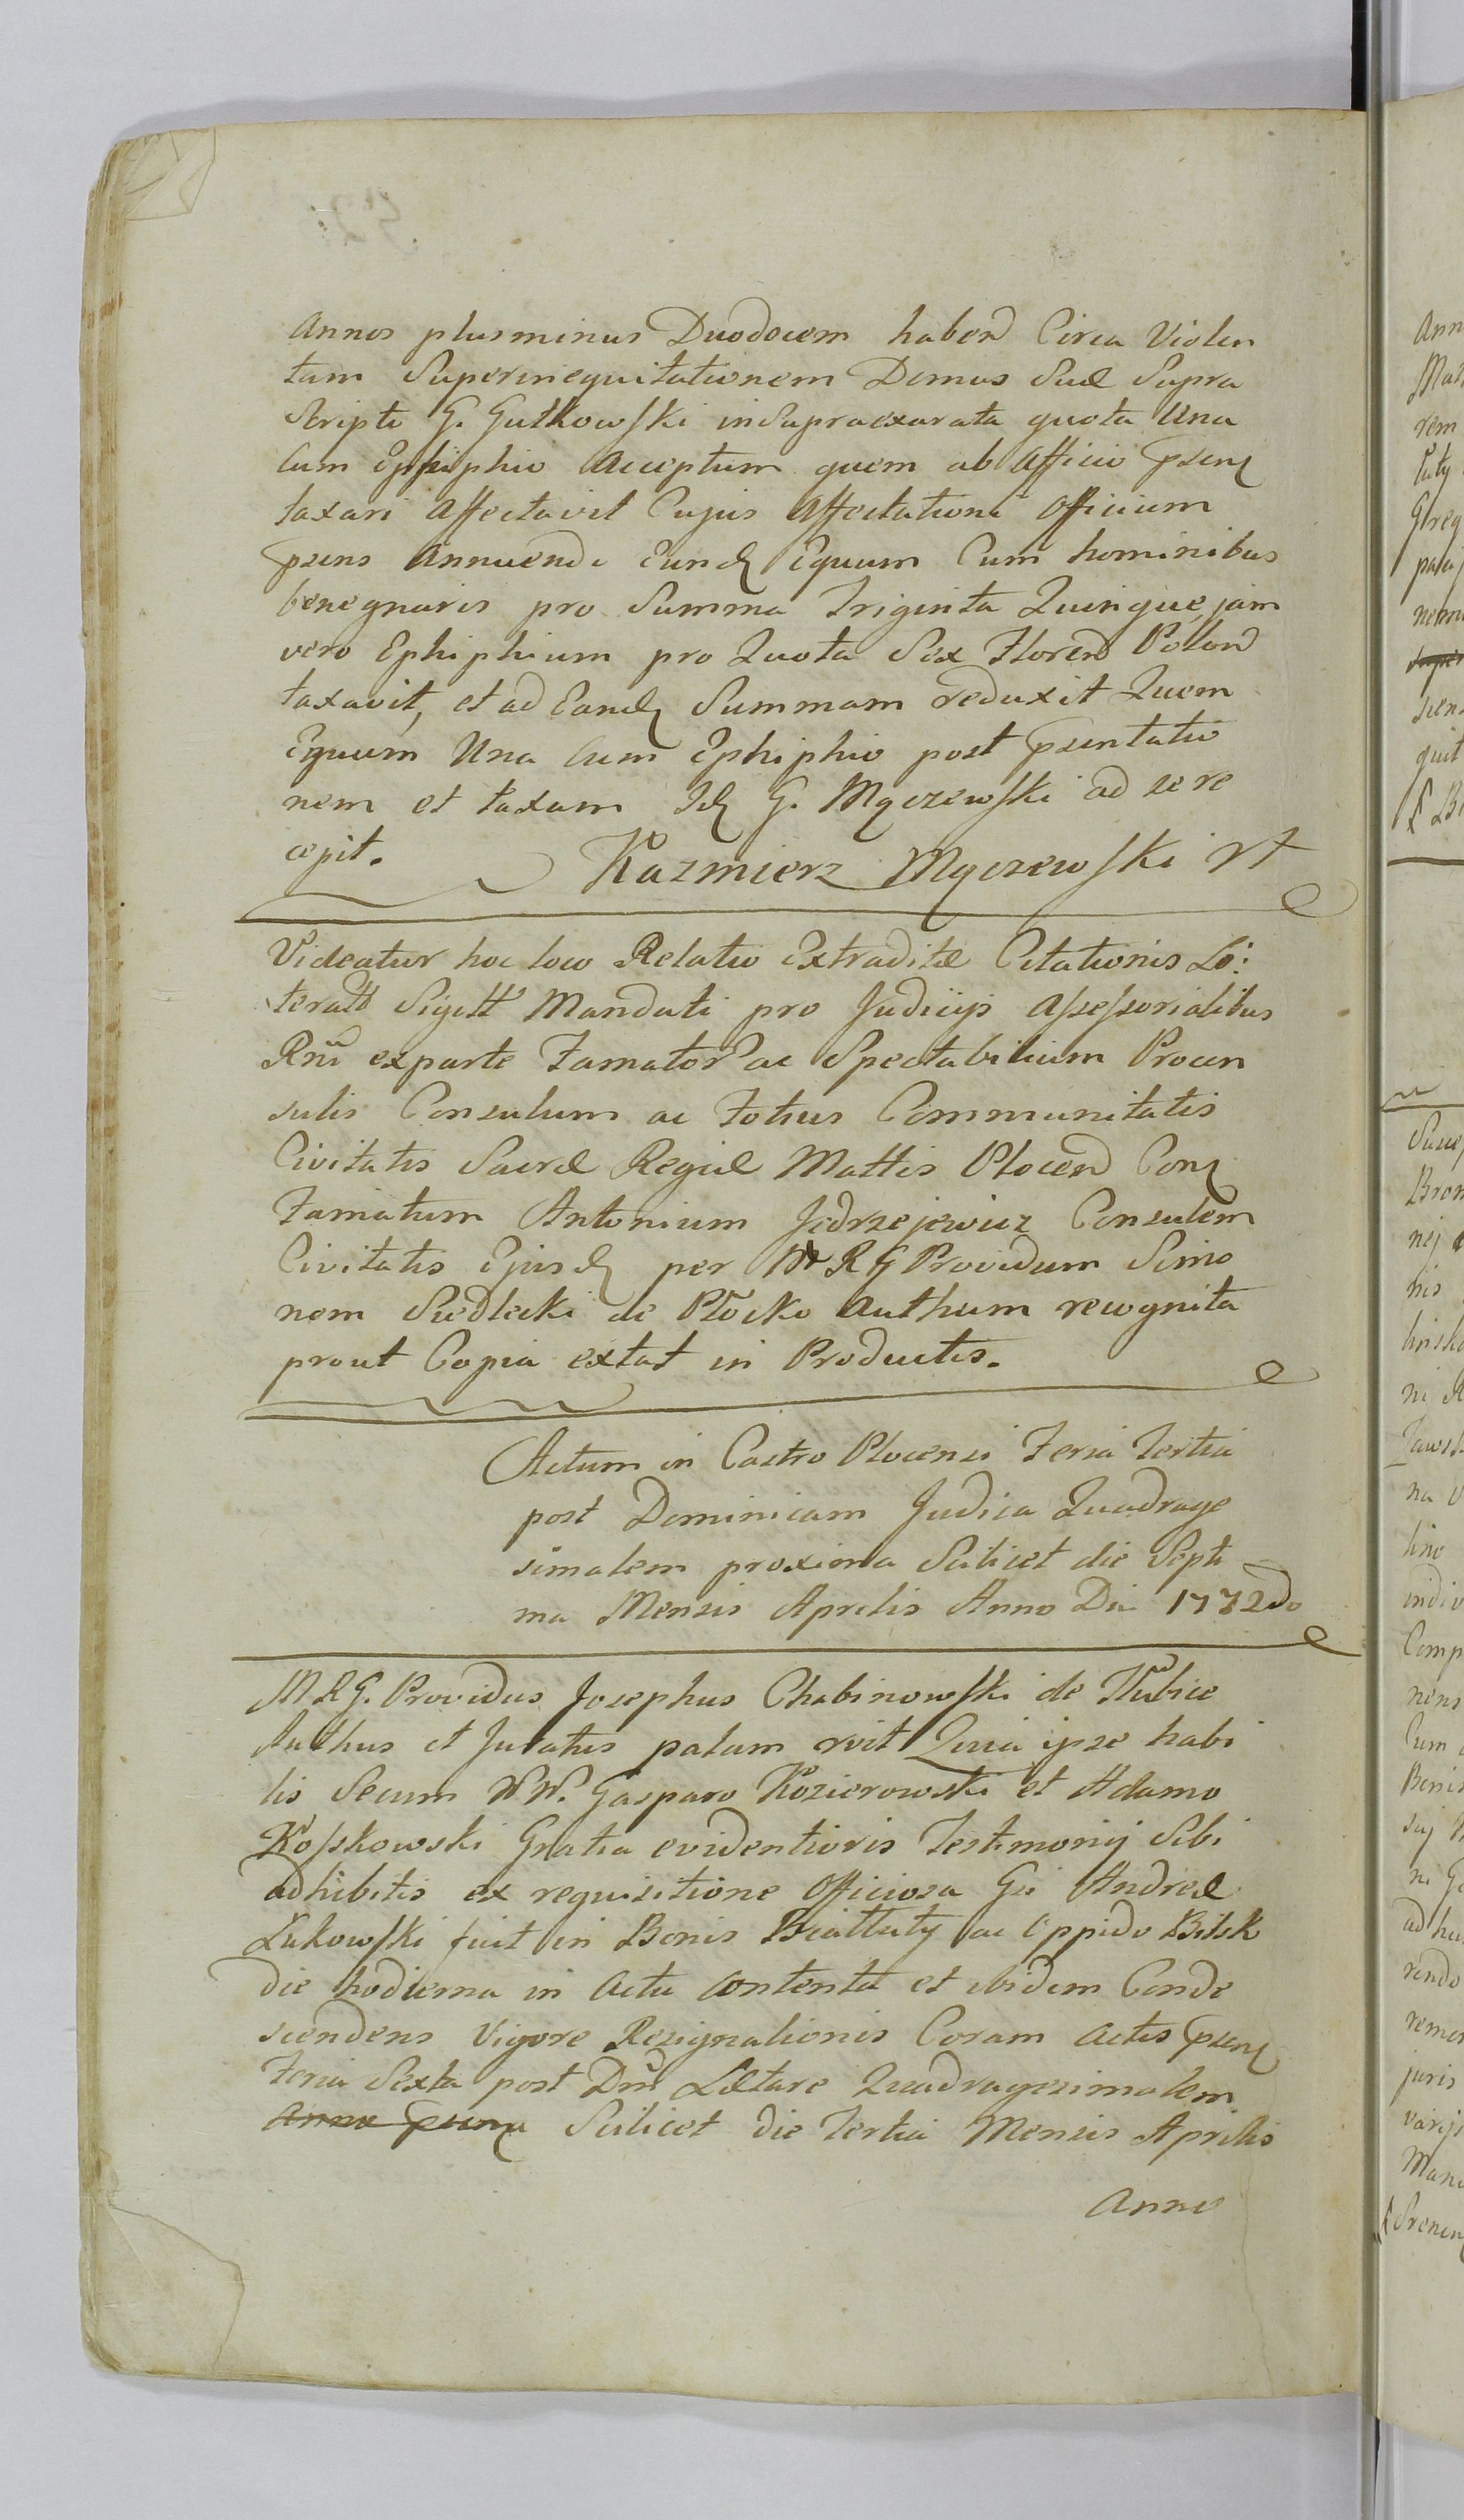 Annos plusminus Duodecem habend Circa Violen
tam Superinequitationem Domus Suæ Supra
Scripti G. Gutkowski in Supraexarata quota Una
Cum Ephiphio Acceptum quem ab Officio Psenq
taxari Affectavit Cujus Affectationi Officium
Psens Annuendi Eundq Equum Cum hominibus
benegnaris pro Summa Triginta Quinque, jam
vero Ephiphium pro Quota Sex Floren Polon
taxavit, et ad Eandq Summam reduxit Quem
Equum Una Cum Ephiphio post Psentatio
nem et taxam Idq G. Mączewski ad se re
cepit.
Kazmierz Mączewski
Videatur hoc loco Relatio Extraditæ Citationis Li:
teralt Sigilt Mandati pro Judicijs Assessorialibus
Rnĩ ex parte Famator ac Spectabilium Procon
sulis Consulum ac Totius Communitatis
Civitatis Sacræ Regiæ Mattis Plocen Conq
Famatum Antonium Jędrzejewicz Consulem
Civitatis Ejusdq per M R G Providum Simo
nem Siedlecki de Płocko Authum recognita
prout Copia extat in Productis.
Actum in Castro Plocensi Feria Tertia
post Dominicam Judica Quadrage
simalem proxima Scilicet die Septi
ma Mensis Aprilis Anno Dni 1772do
M R G. Providus Josephus Chabinowski de
Authus et Juratus palam rvit Quia ipse habi
lis Secum WW. Gasparo Kozierowski et Adamo
Kosskowski Gratia evidentioris Testimonij Sibi
adhibitis ex requisitione Officiosa Gsi Andreæ
Łukowski fuit in Bonis ac Oppido Bilsk
die hodierna in Actu Contenta et ibidem Conde
scendens Vigore Resignationis Coram Actis Psenq
Feria Sexta post Dnĩ Lætare Quadragesimalem
Scilicet die Tertia Mensis Aprilis
Anno